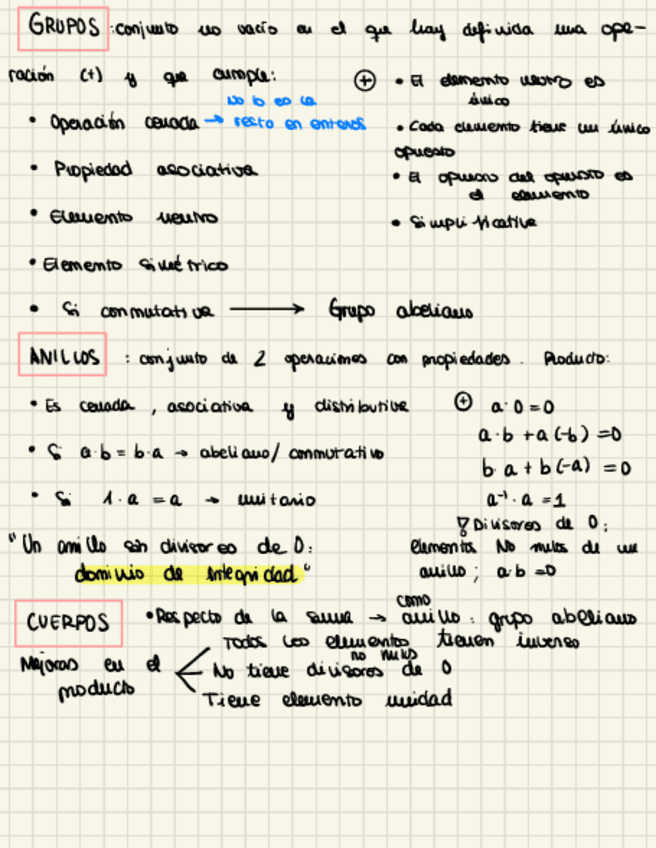 GRUPOS : conjunto no vacío en el que hay definida una ope-
ración (+) y que cumple:
• Operación cerrada → no lo es la
resta en enteros
• Propiedad asociativa
• Elemento neutro
• Elemento simétrico
• Si conmutativa → Grupo abeliano
⊕ • El elemento neutro es
único
• Cada elemento tiene un único
opuesto
• El opuesto del opuesto es
el elemento
• Simplificativa
ANILLOS : conjunto de 2 operaciones con propiedades. Producto:
• Es cerrada, asociativa y distributiva
• Si a·b = b·a → abeliano/conmutativo
• Si 1·a = a → unitario
"Un anillo sin divisores de 0:
dominio de integridad"
⊕ a·0=0
a·b + a(-b) = 0
b·a + b(-a) = 0
a⁻¹·a = 1
Divisores de 0:
elementos No nulos de un
anillo; a·b=0
CUERPOS • Respecto de la suma → como anillo: grupo abeliano
Mejoras en el
producto
Todos los elementos no nulos tienen inverso
No tiene divisores de 0
Tiene elemento unidad